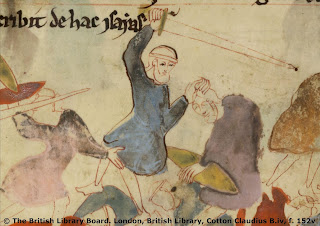 cribit de hac ysaias
© The British Library Board. London, British Library, Cotton Claudius B.iv, f. 152v